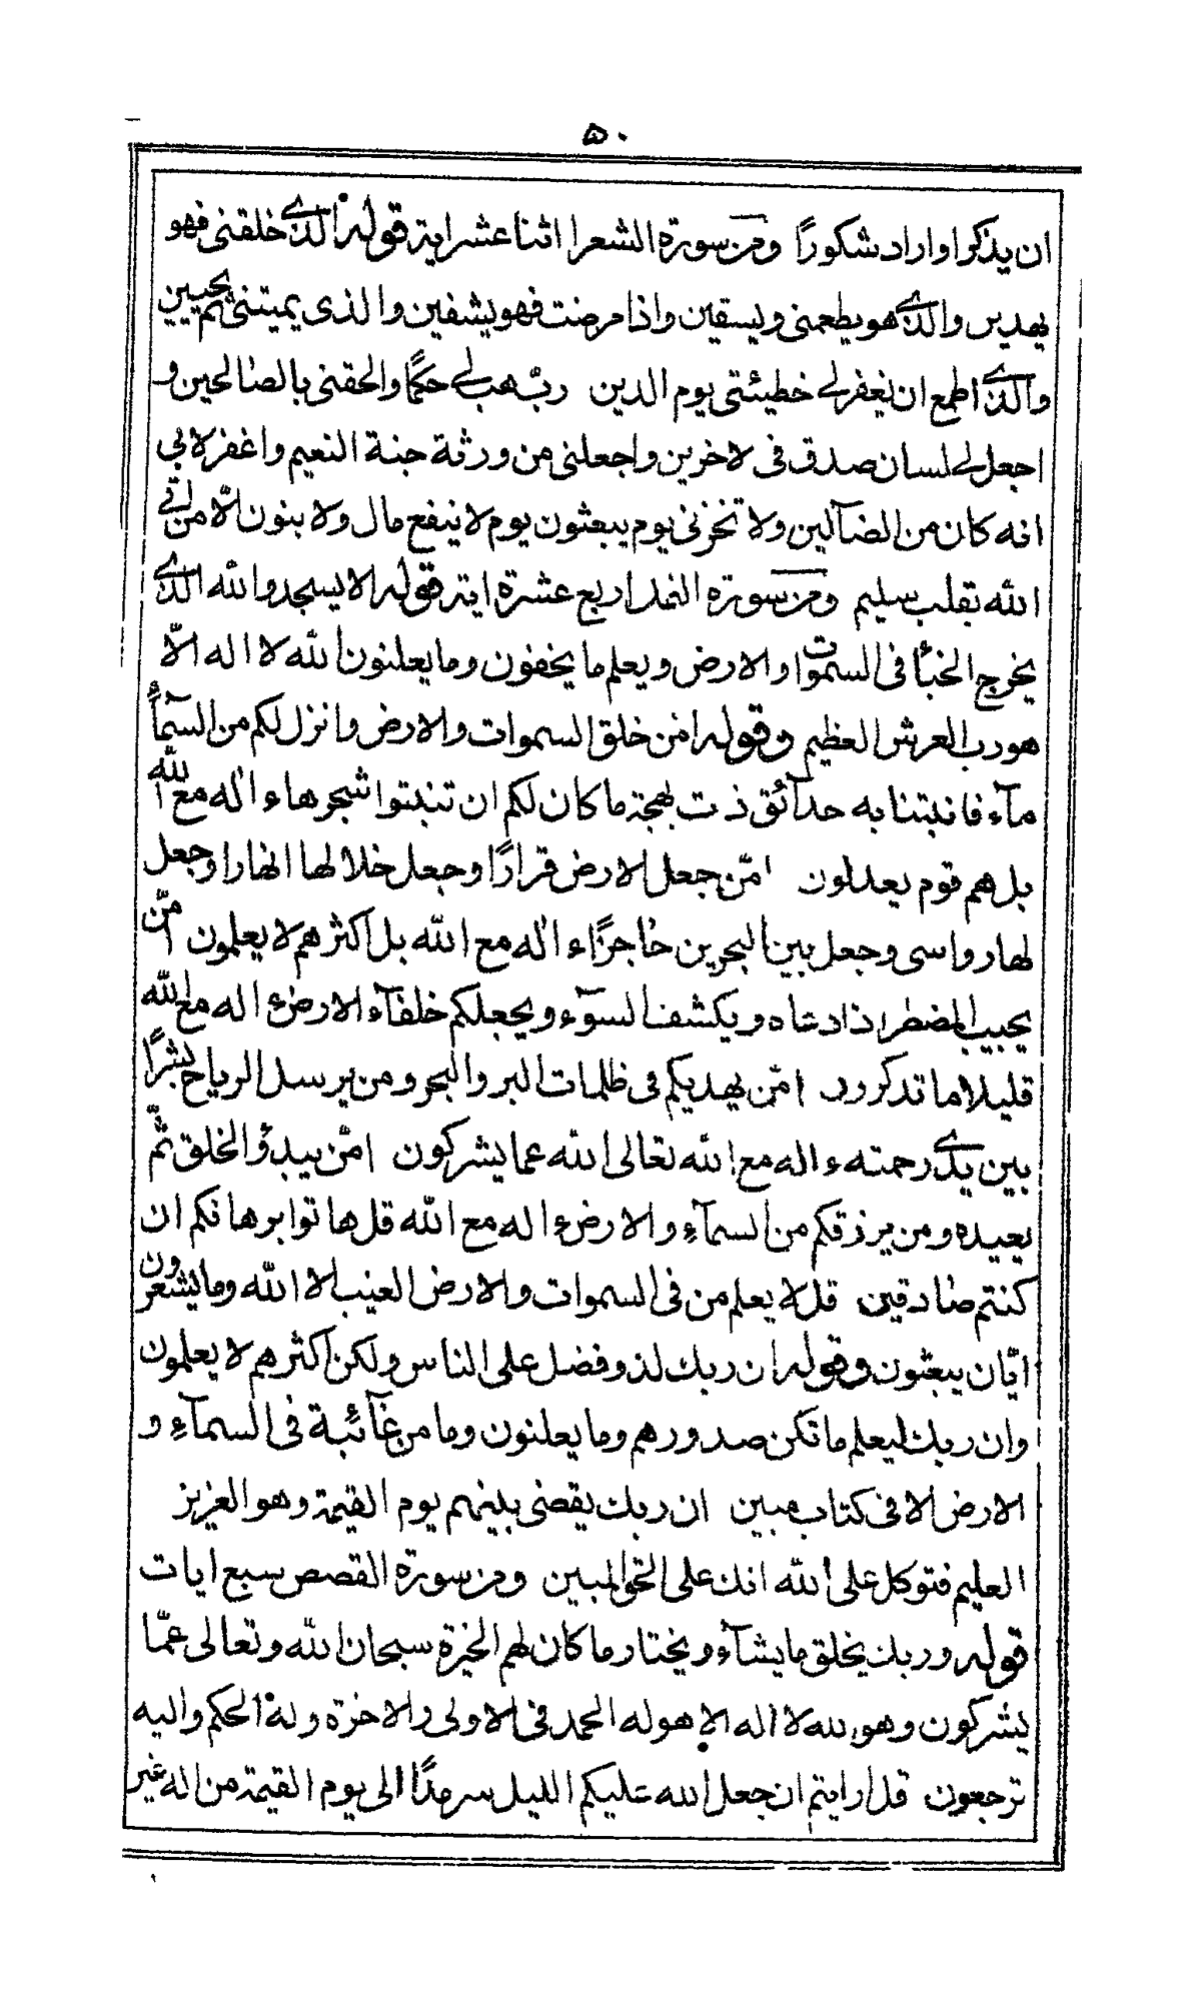 ۵۰
ان يذكر او اراد شكورًا ومن سورة الشعرا اثنا عشر اية قوله الذي خلقنى فهو
يهدين والذي هو يطعمنى ويسقين واذا مرضت فهو يشفين والذى يميتنى ثم يحيين
والذي اطمع ان يغفر لي خطيئتى يوم الدين رب هب لي حكمًا والحقنى بالصالحين و
اجعل لي لسان صدق فى لاخرين واجعلنى من ورثة جنة النعيم واغفر لابي
انه كان من الضآلين ولا تخزنى يوم يبعثون يوم لا ينفع مال ولا بنون الّا من اتى
الله بقلب سليم ومن سورة النمل اربع عشرة اية قوله الا يسجدوا لله الذي
يخرج الخبأ فى السموات والارض ويعلم ما يخفون وما يعلنون الله لا اله الّا
هو رب العرش العظيم وقوله امن خلق السموات والارض وانزل لكم من السمآء
مآء فانبتنا به حدآئق ذت بهجة ما كان لكم ان تنبتوا شجرها ء اله مع الله
بل هم قوم يعدلون امّن جعل الارض قرارًا وجعل خلالها انهارا وجعل
لها رواسى وجعل بين البحرين حاجزًا ء اله مع الله بل اكثرهم لا يعلمون امّن
يجيب المضطر اذا دعاه ويكشف السوٓء ويجعلكم خلفآء الارض ء اله مع الله
قليلا ما تذكرون امّن يهديكم فى ظلمات البر والبحر ومن يرسل الرياح بشرًا
بين يدي رحمته ء اله مع الله تعالى الله عما يشركون امّن يبدؤ الخلق ثمّ
يعيده ومن يرزقكم من السمآء والارض ء اله مع الله قل هاتوا برهانكم ان
كنتم صادقين قل لا يعلم من فى السموات والارض الغيب الا الله وما يشعرون
ايّان يبعثون وقوله ان ربك لذو فضل على الناس ولكن اكثرهم لا يعلمون
وان ربك ليعلم ما تكن صدورهم وما يعلنون وما من غآئبة فى السمآء و
الارض الا فى كتاب مبين ان ربك يقضى بينهم يوم القيمة وهو العزيز
العليم فتوكل على الله انك على الحق المبين ومن سورة القصص سبع ايات
قوله وربك يخلق ما يشآء ويختار ما كان لهم الخيرة سبحان الله وتعالى عمّا
يشركون وهو الله لا اله الا هو له الحمد فى الاولى والاخرة وله الحكم واليه
ترجعون قل ارايتم ان جعل الله عليكم الليل سرمدًا الى يوم القيمة من اله غير